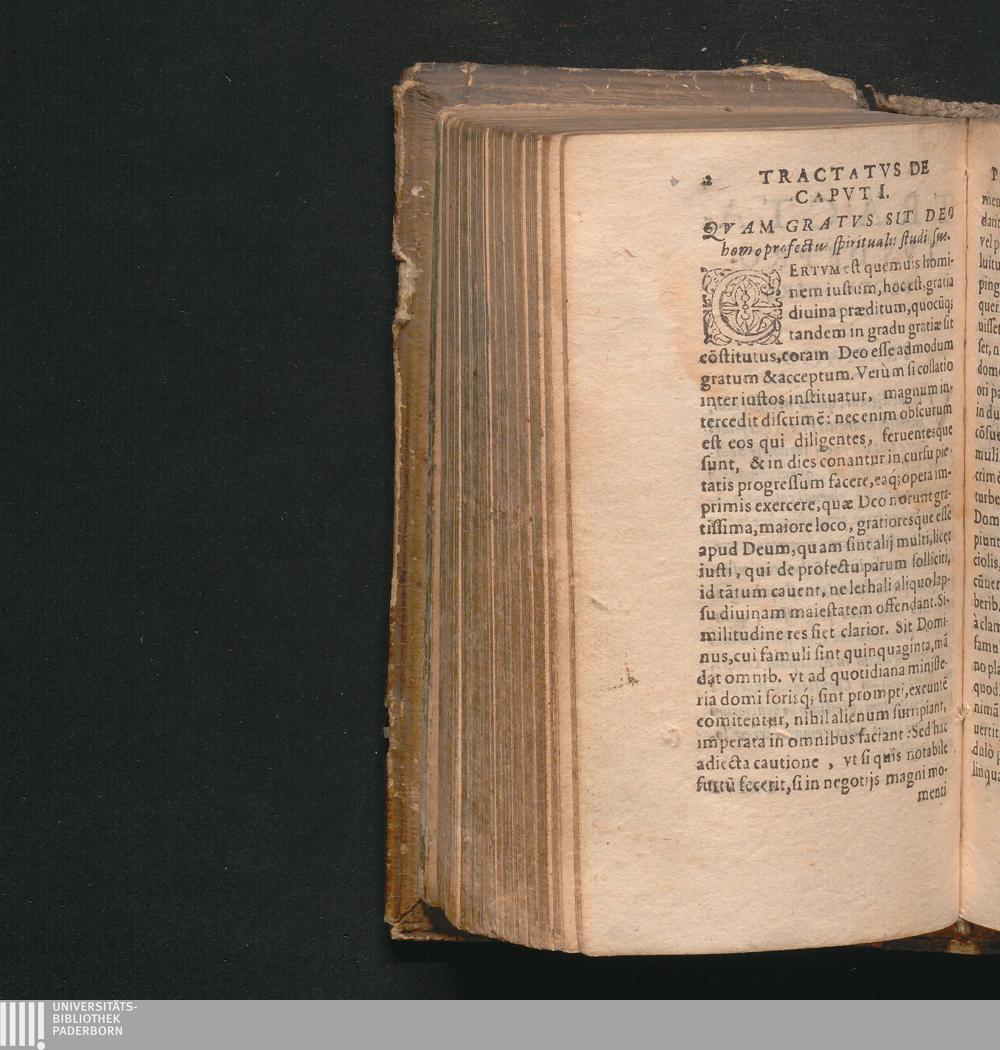 2 TRACTATVS DE
CAPVT I.
QVAM GRATVS SIT DEO
homo profectus spiritualis studiosus.
CERTVM est quemuis homi-
nem iustum, hoc est, gratia
diuina præditum, quocūq;
tandem in gradu gratiæ sit
cōstitutus, coram Deo esse admodum
gratum & acceptum. Verùm si collatio
inter iustos instituatur, magnum in-
tercedit discrimē: nec enim obscurum
est eos qui diligentes, feruentesque
sunt, & in dies conantur in cursu pie-
tatis progressum facere, eaq́; opera im-
primis exercere, quæ Deo norunt gra-
tissima, maiore loco, gratioresque esse
apud Deum, quam sint alij multi, licet
iusti, qui de profectu parum solliciti,
id tātum cauent, ne lethali aliquo lap-
su diuinam maiestatem offendant. Si-
militudine res fiet clarior. Sit Domi-
nus, cui famuli sint quinquaginta, mā
dat omnib. vt ad quotidiana ministe-
ria domi forisq́; sint prompti, exeuntē
comitentur, nihil alienum surripiant,
imperata in omnibus faciant: Sed hac
adiecta cautione, vt si quis notabile
furtū fecerit, si in negotijs magni mo-
menti
UNIVERSITÄTS-
BIBLIOTHEK
PADERBORN